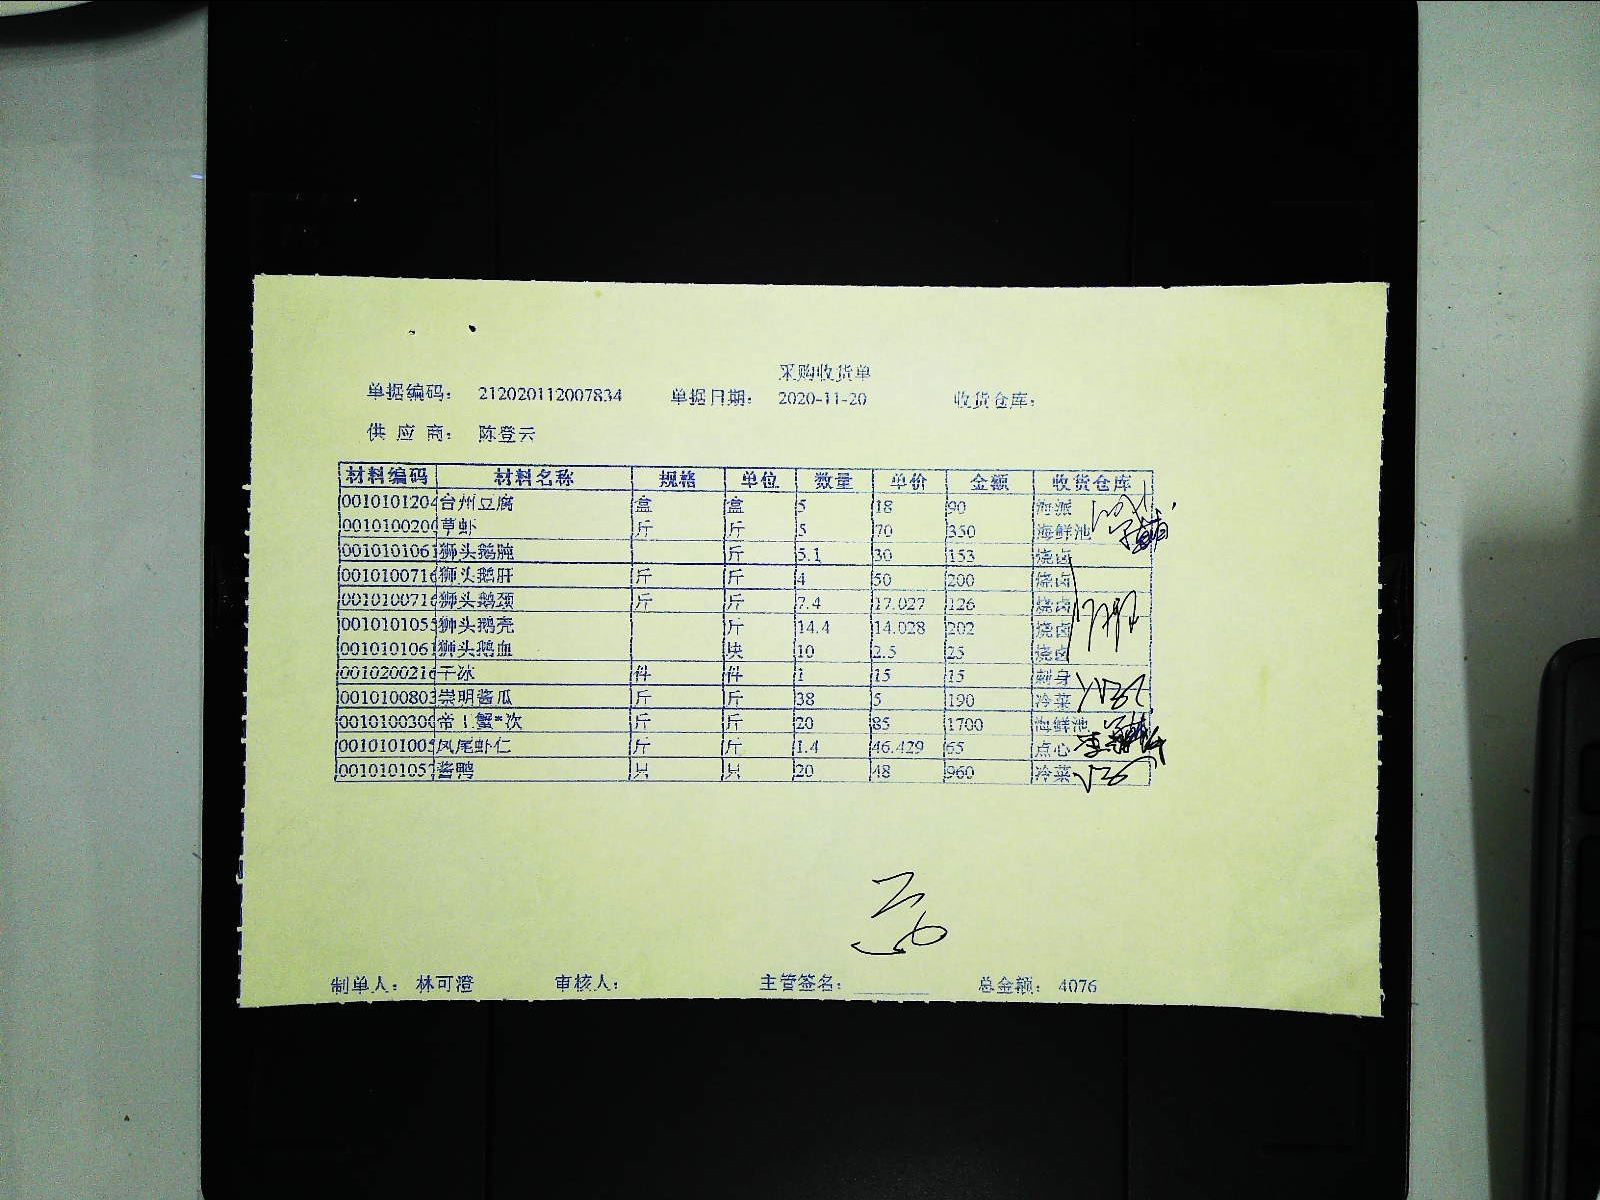 采购收货单
单据编码： 212020112007834 单据日期： 2020-11-20 收货仓库：
供 应 商： 陈登云
材料编码 材料名称 规格 单位 数量 单价 金额 收货仓库
0010101204 台州豆腐 盒 盒 5 18 90 海派
001010020 草虾 斤 斤 5 70 350 海鲜池
0010101061 狮头鹅肫 斤 5.1 30 153 烧卤
0010100716 狮头鹅肝 斤 斤 4 50 200 烧卤
0010100716 狮头鹅颈 斤 斤 7.4 17.027 126 烧卤
0010101055 狮头鹅壳 斤 14.4 14.028 202 烧卤
0010101061 狮头鹅血 块 10 2.5 25 烧卤
0010200216 干冰 件 件 1 15 15 刺身
0010100803 崇明酱瓜 斤 斤 38 5 190 冷菜
001010030 帝王蟹*次 斤 斤 20 85 1700 海鲜池
0010101005 凤尾虾仁 斤 斤 1.4 46.429 65 点心
0010101057 酱鸭 只 只 20 48 960 冷菜
制单人： 林可澄 审核人： 主管签名： 总金额： 4076